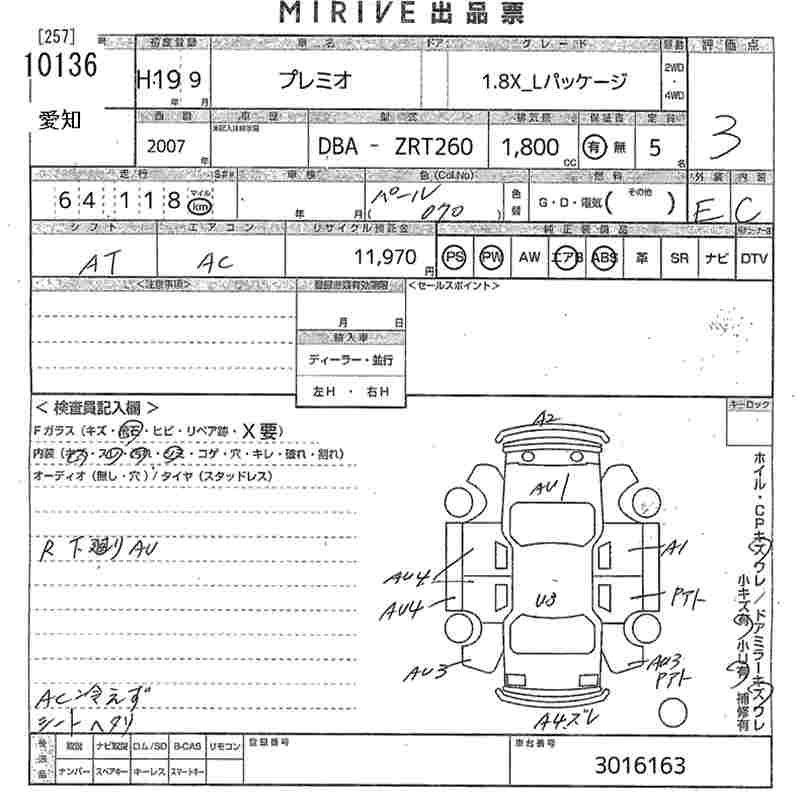 MIRIVE 出品票
[257]
10136
愛知
初度登録 車名 ドア グレード 駆動 評価点
H19 9 年 月 プレミオ 1.8X_Lパッケージ 2WD ・ 4WD 3
西暦 車歴 型式 排気量 保証書 定員
2007 年 未記入は自家用 DBA - ZRT260 1,800 CC 有 無 5 名
走行 車検 色(Col.No) 燃料 外装 内装
64118 マイル km 年 月 パール ( 070 ) 色替 G・D・電気 ( その他 ) E C
シフト エアコン リサイクル預託金 純正装備品
AT AC 11,970 円 PS PW AW エアB ABS 革 SR ナビ DTV
<注意事項> 登録書類有効期限 <セールスポイント>
月 日
輸入車
ディーラー・並行
左H ・ 右H
<検査員記入欄> キーロック
Fガラス (キズ・飛石・ヒビ・リペア跡・X要)
内装 (キズ・スレ・汚れ・シミ・コゲ・穴・キレ・破れ・割れ)
オーディオ (無し・穴) / タイヤ (スタッドレス)
R 下廻り AU
AC冷えず
シートヘタリ
A2
AU1
A1
AU4
AU4
U3
Pアト
AU3
AU3
Pアト
A4ズレ
ホイル・CPキズワレ/ドアミラーキズワレ
小キズ有 小U有 補修有
後送品 取説 ナビ取説 ロム/SD B-CAS リモコン 登録番号 車台番号
ナンバー スペアキー キーレス スマートキー 3016163